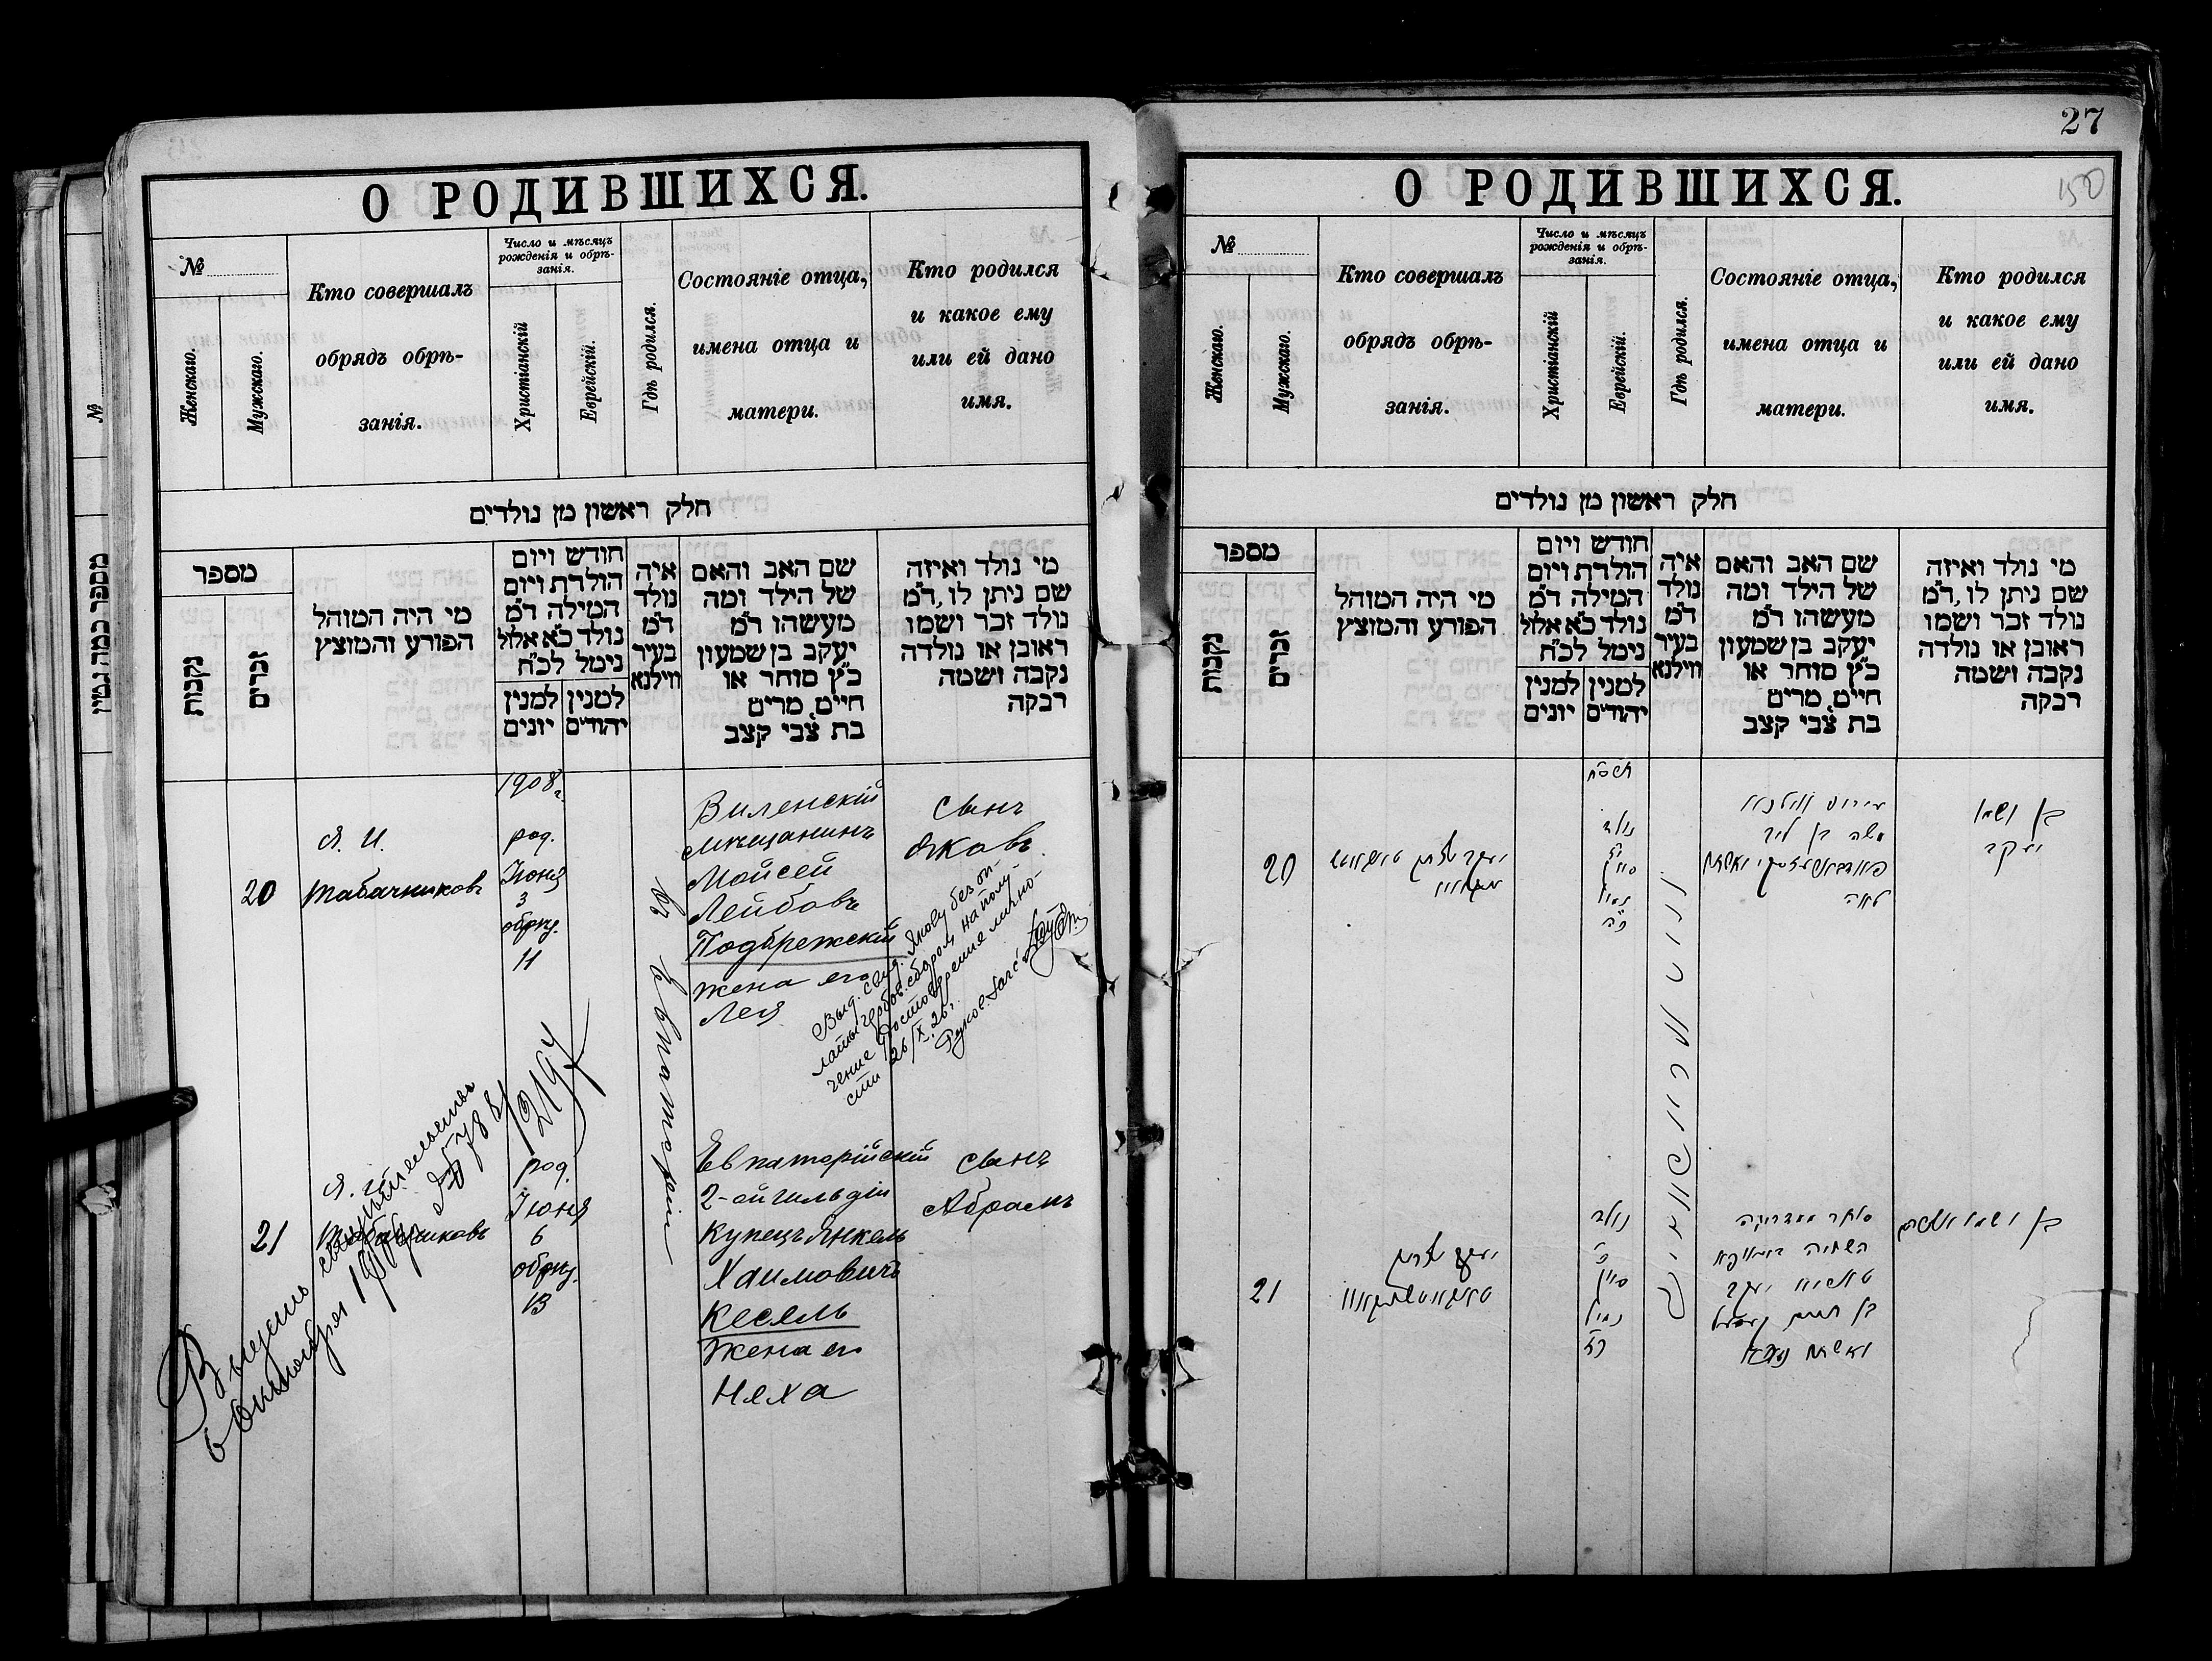 О РОДИВШИХСЯ.
№
Женскаго.
Мужскаго.
Кто совершалъ
обрядъ обрѣ-
занія.
Число и мѣсяцъ
рожденія и обрѣ-
занія.
Христіанскій
Еврейскій.
Гдѣ родился.
Состояніе отца,
имена отца и
матери.
Кто родился
и какое ему
или ей дано
имя.
חלק ראשון מן נולדים
מספר
נקבות
זכרים
מי היה המוהל
הפורע והמוצץ
חודש ויום
הולדת ויום
המילה ד״מ
נולד כ״א אלול
נימל לכ״ח
למנין יונים
למנין יהודים
איה
נולד
ד״מ
בעיר
ווילנא
שם האב והאם
של הילד ומה
מעשהו ד״מ
יעקב בן שמעון
כ״ץ סוחר או
חיים, מרים
בת צבי קצב
מי נולד ואיזה
שם ניתן לו, ד״מ
נולד זכר ושמו
ראובן או נולדה
נקבה ושמה
רבקה
20
Я. И.
Табачниковъ
1908 г.
род.
Іюня
3
обрѣз.
11
въ Евпаторіи
Виленскій
мѣщанинъ
Мойсей
Лейбовъ
Подбрежскій
жена его
Лея
сынъ
Яковъ
Выд. свид. Якову без оп-
латы гербов. сбором на полу-
чение удостоверение лично-
сти 26/X.26 г.
21
Я. И.
Табачниковъ
род.
Іюня
6
обрѣз.
13
Евпаторійскій
2-ой гильдіи
Купецъ Янкель
Хаимовичъ
Кесель
Жена его
Неха
сынъ
Абрамъ
27
150
О РОДИВШИХСЯ.
№
Женскаго.
Мужскаго.
Кто совершалъ
обрядъ обрѣ-
занія.
Число и мѣсяцъ
рожденія и обрѣ-
занія.
Христіанскій
Еврейскій.
Гдѣ родился.
Состояніе отца,
имена отца и
матери.
Кто родился
и какое ему
или ей дано
имя.
חלק ראשון מן נולדים
מספר
נקבות
זכרים
מי היה המוהל
הפורע והמוצץ
חודש ויום
הולדת ויום
המילה ד״מ
נולד כ״א אלול
נימל לכ״ח
למנין יונים
למנין יהודים
איה
נולד
ד״מ
בעיר
ווילנא
שם האב והאם
של הילד ומה
מעשהו ד״מ
יעקב בן שמעון
כ״ץ סוחר או
חיים, מרים
בת צבי קצב
מי נולד ואיזה
שם ניתן לו, ד״מ
נולד זכר ושמו
ראובן או נולדה
נקבה ושמה
רבקה
20
נולד
סיון
נימול
משה בן ליב
לאה
בן ושמו
יעקב
21
נולד
סיון
נימול
יעקב
בן חיים
בן ושמו